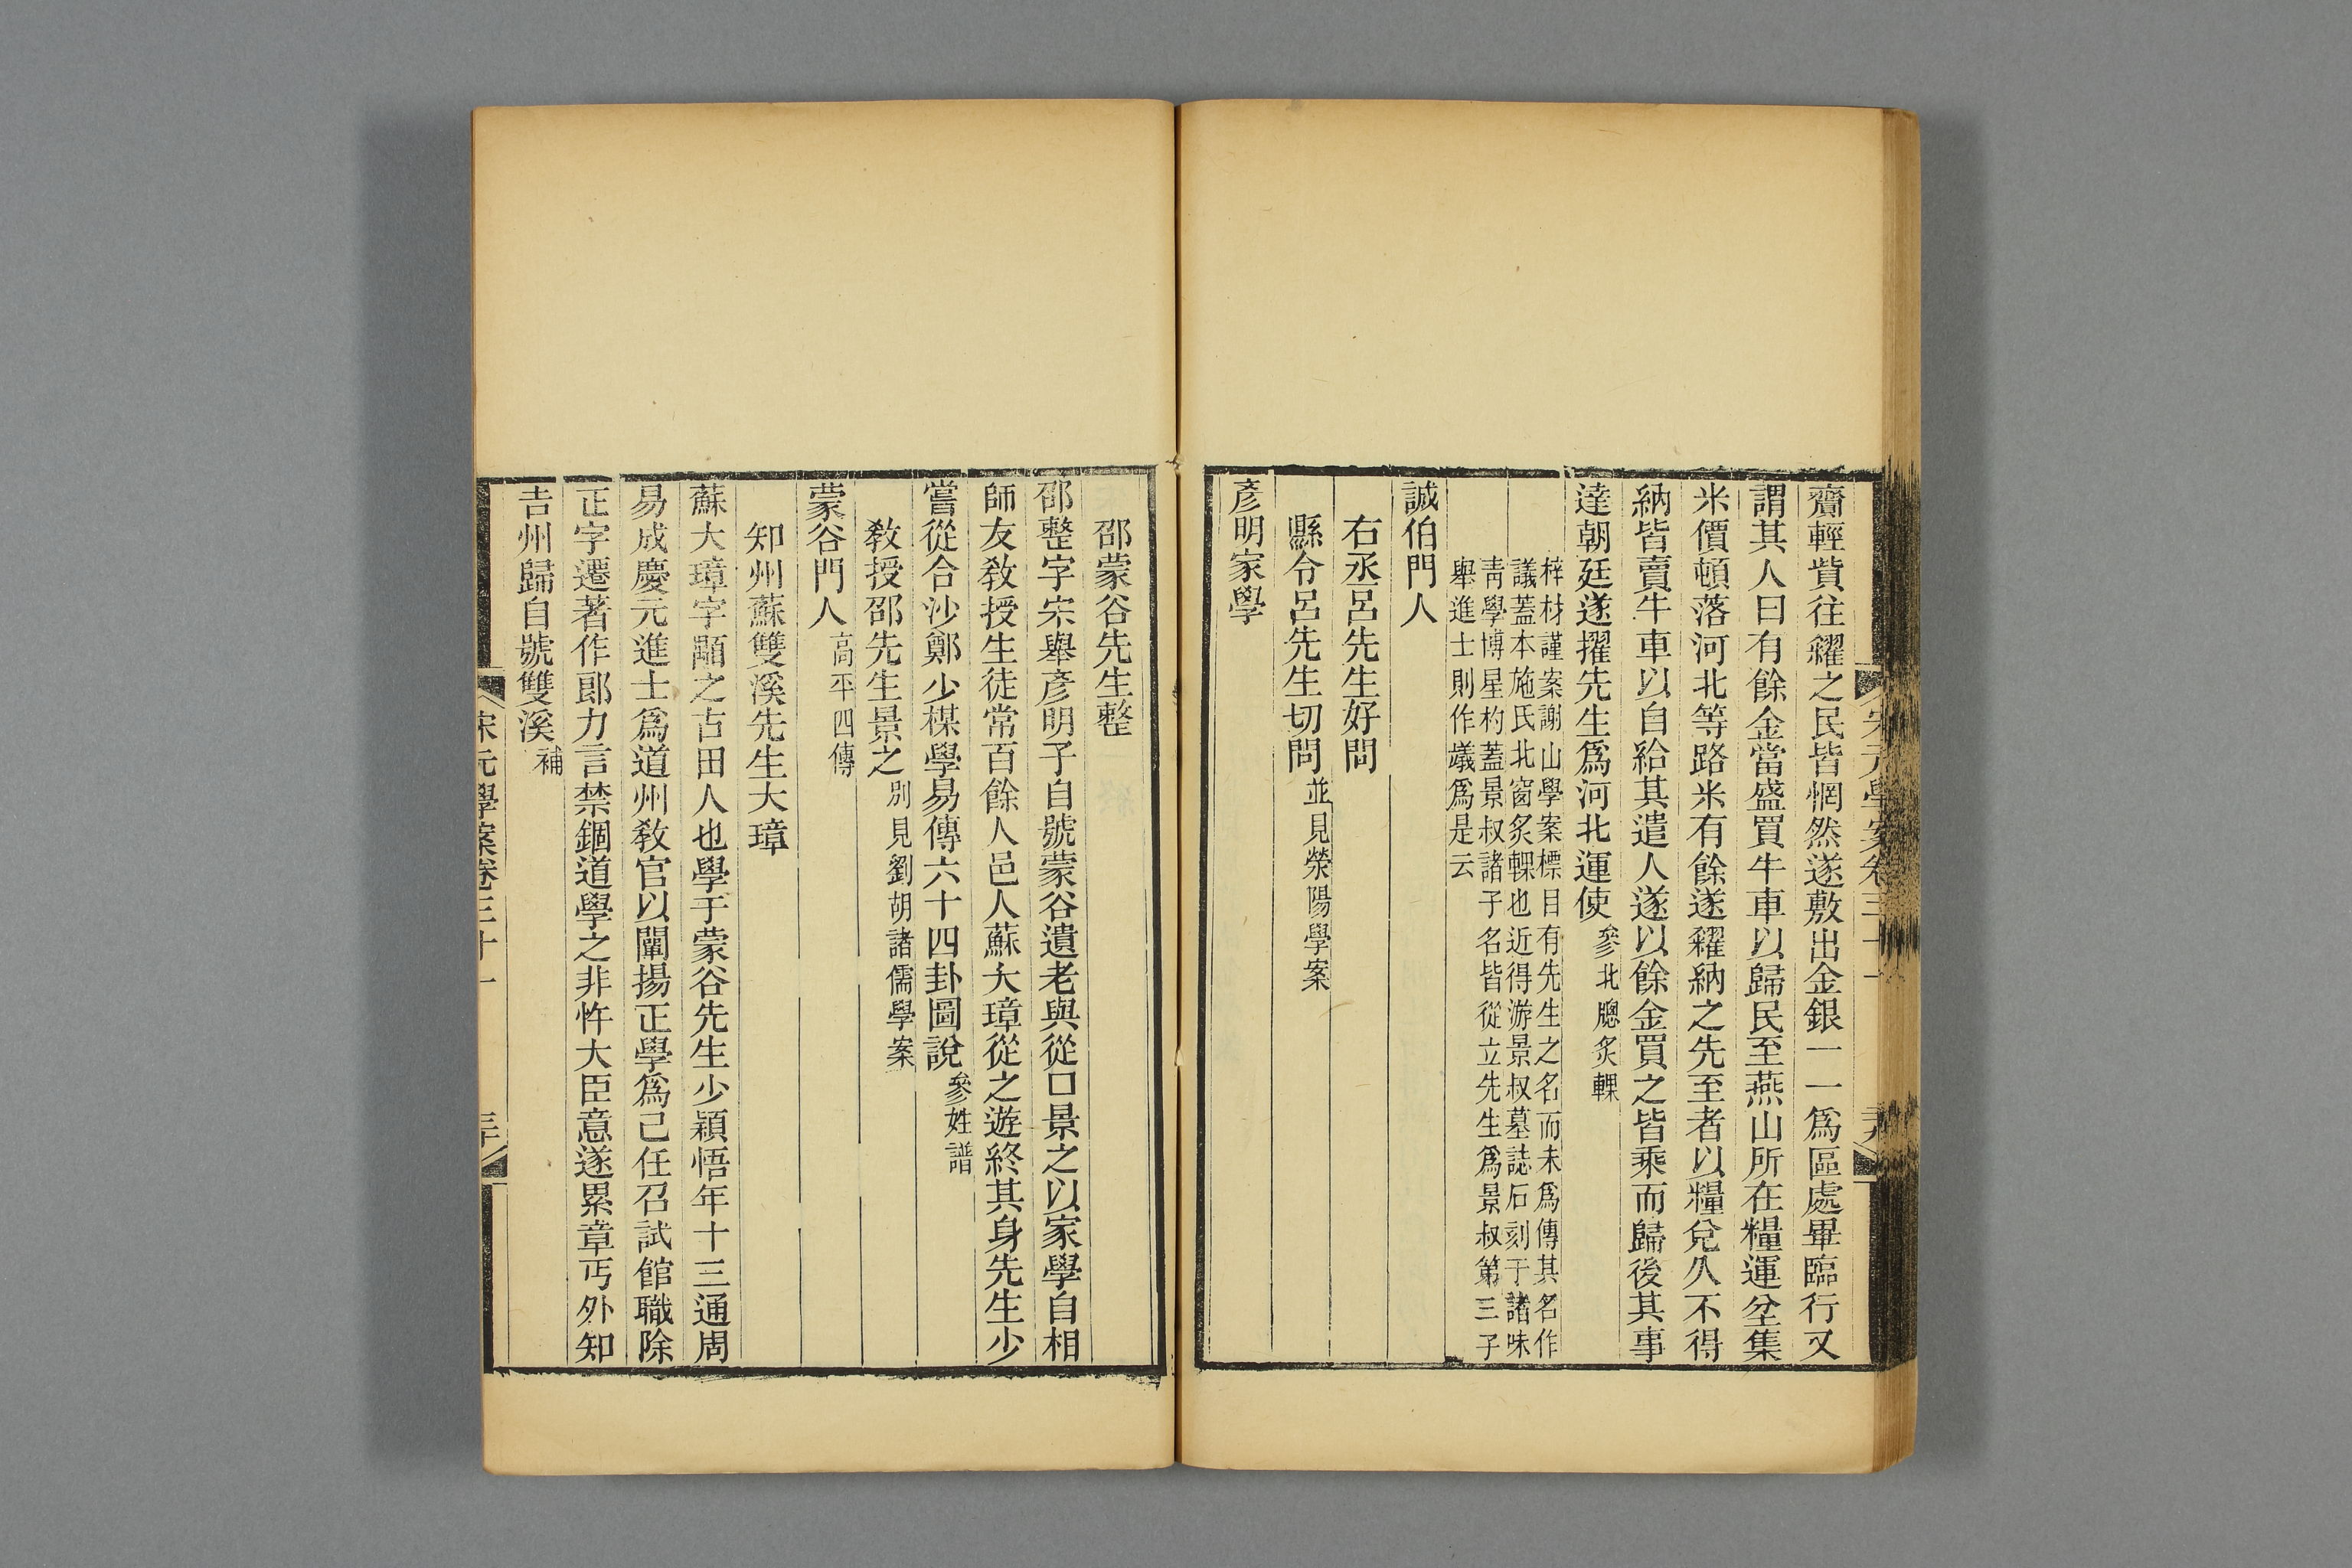 齎輕貲往糴之民皆惘然遂敷出金銀一一爲區處畢臨行又
謂其人曰有餘金當盛買牛車以歸民至燕山所在糧運坌集
米價頓落河北等路米有餘遂糴納之先至者以糧兌久不得
納皆賣牛車以自給其遣人遂以餘金買之皆乘而歸後其事
達朝廷遂擢先生爲河北運使參北牕炙輠
梓材謹案謝山學案標目有先生之名而未爲傳其名作
議蓋本施氏北窗炙輠也近得游景叔墓誌石刻于諸昧
靑學博星杓蓋景叔諸子名皆從立先生爲景叔第三子
舉進士則作䗁爲是云
誠伯門人
右丞呂先生好問
縣令呂先生切問並見滎陽學案
彥明家學
宋元學案卷三十一
邵蒙谷先生整
邵整字宋舉彥明子自號蒙谷遺老與從口景之以家學自相
師友敎授生徒常百餘人邑人蘇大璋從之遊終其身先生少
嘗從合沙鄭少楳學易傳六十四卦圖說參姓譜
敎授邵先生景之別見劉胡諸儒學案
蒙谷門人高平四傳
知州蘇雙溪先生大璋
蘇大璋字顒之古田人也學于蒙谷先生少穎悟年十三通周
易成慶元進士爲道州敎官以闡揚正學爲己任召試館職除
正字遷著作郞力言禁錮道學之非忤大臣意遂累章丐外知
吉州歸自號雙溪補
宋元學案卷三十一